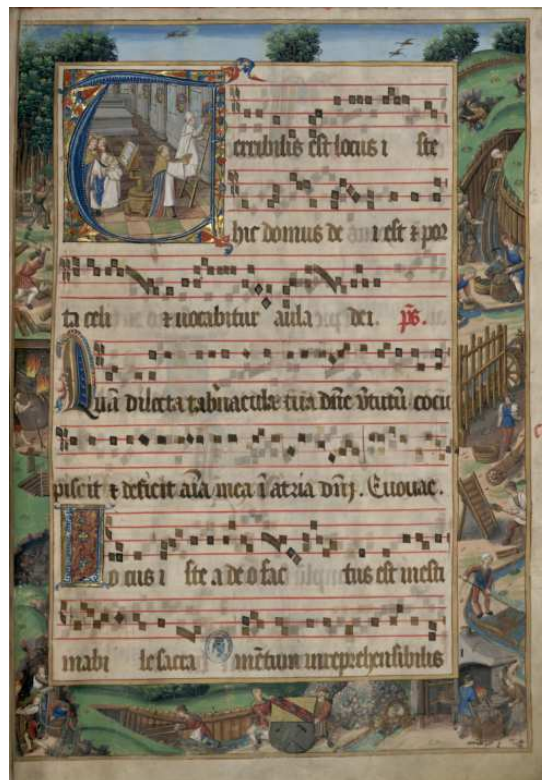 Terribilis est locus i ste
hic domus de i est ⁊ por
ta celi ⁊ uocabitur aula dei. p̄s.
Quā dilecta tab̄nacula tua dn̄e v̄tutū cōcu
piscit ⁊ deficit aīa mea ī atria dn̄j. Euouae.
Locus i ste a de o fac tus est inesti
mabi le sacra mētum irreprehensibilis